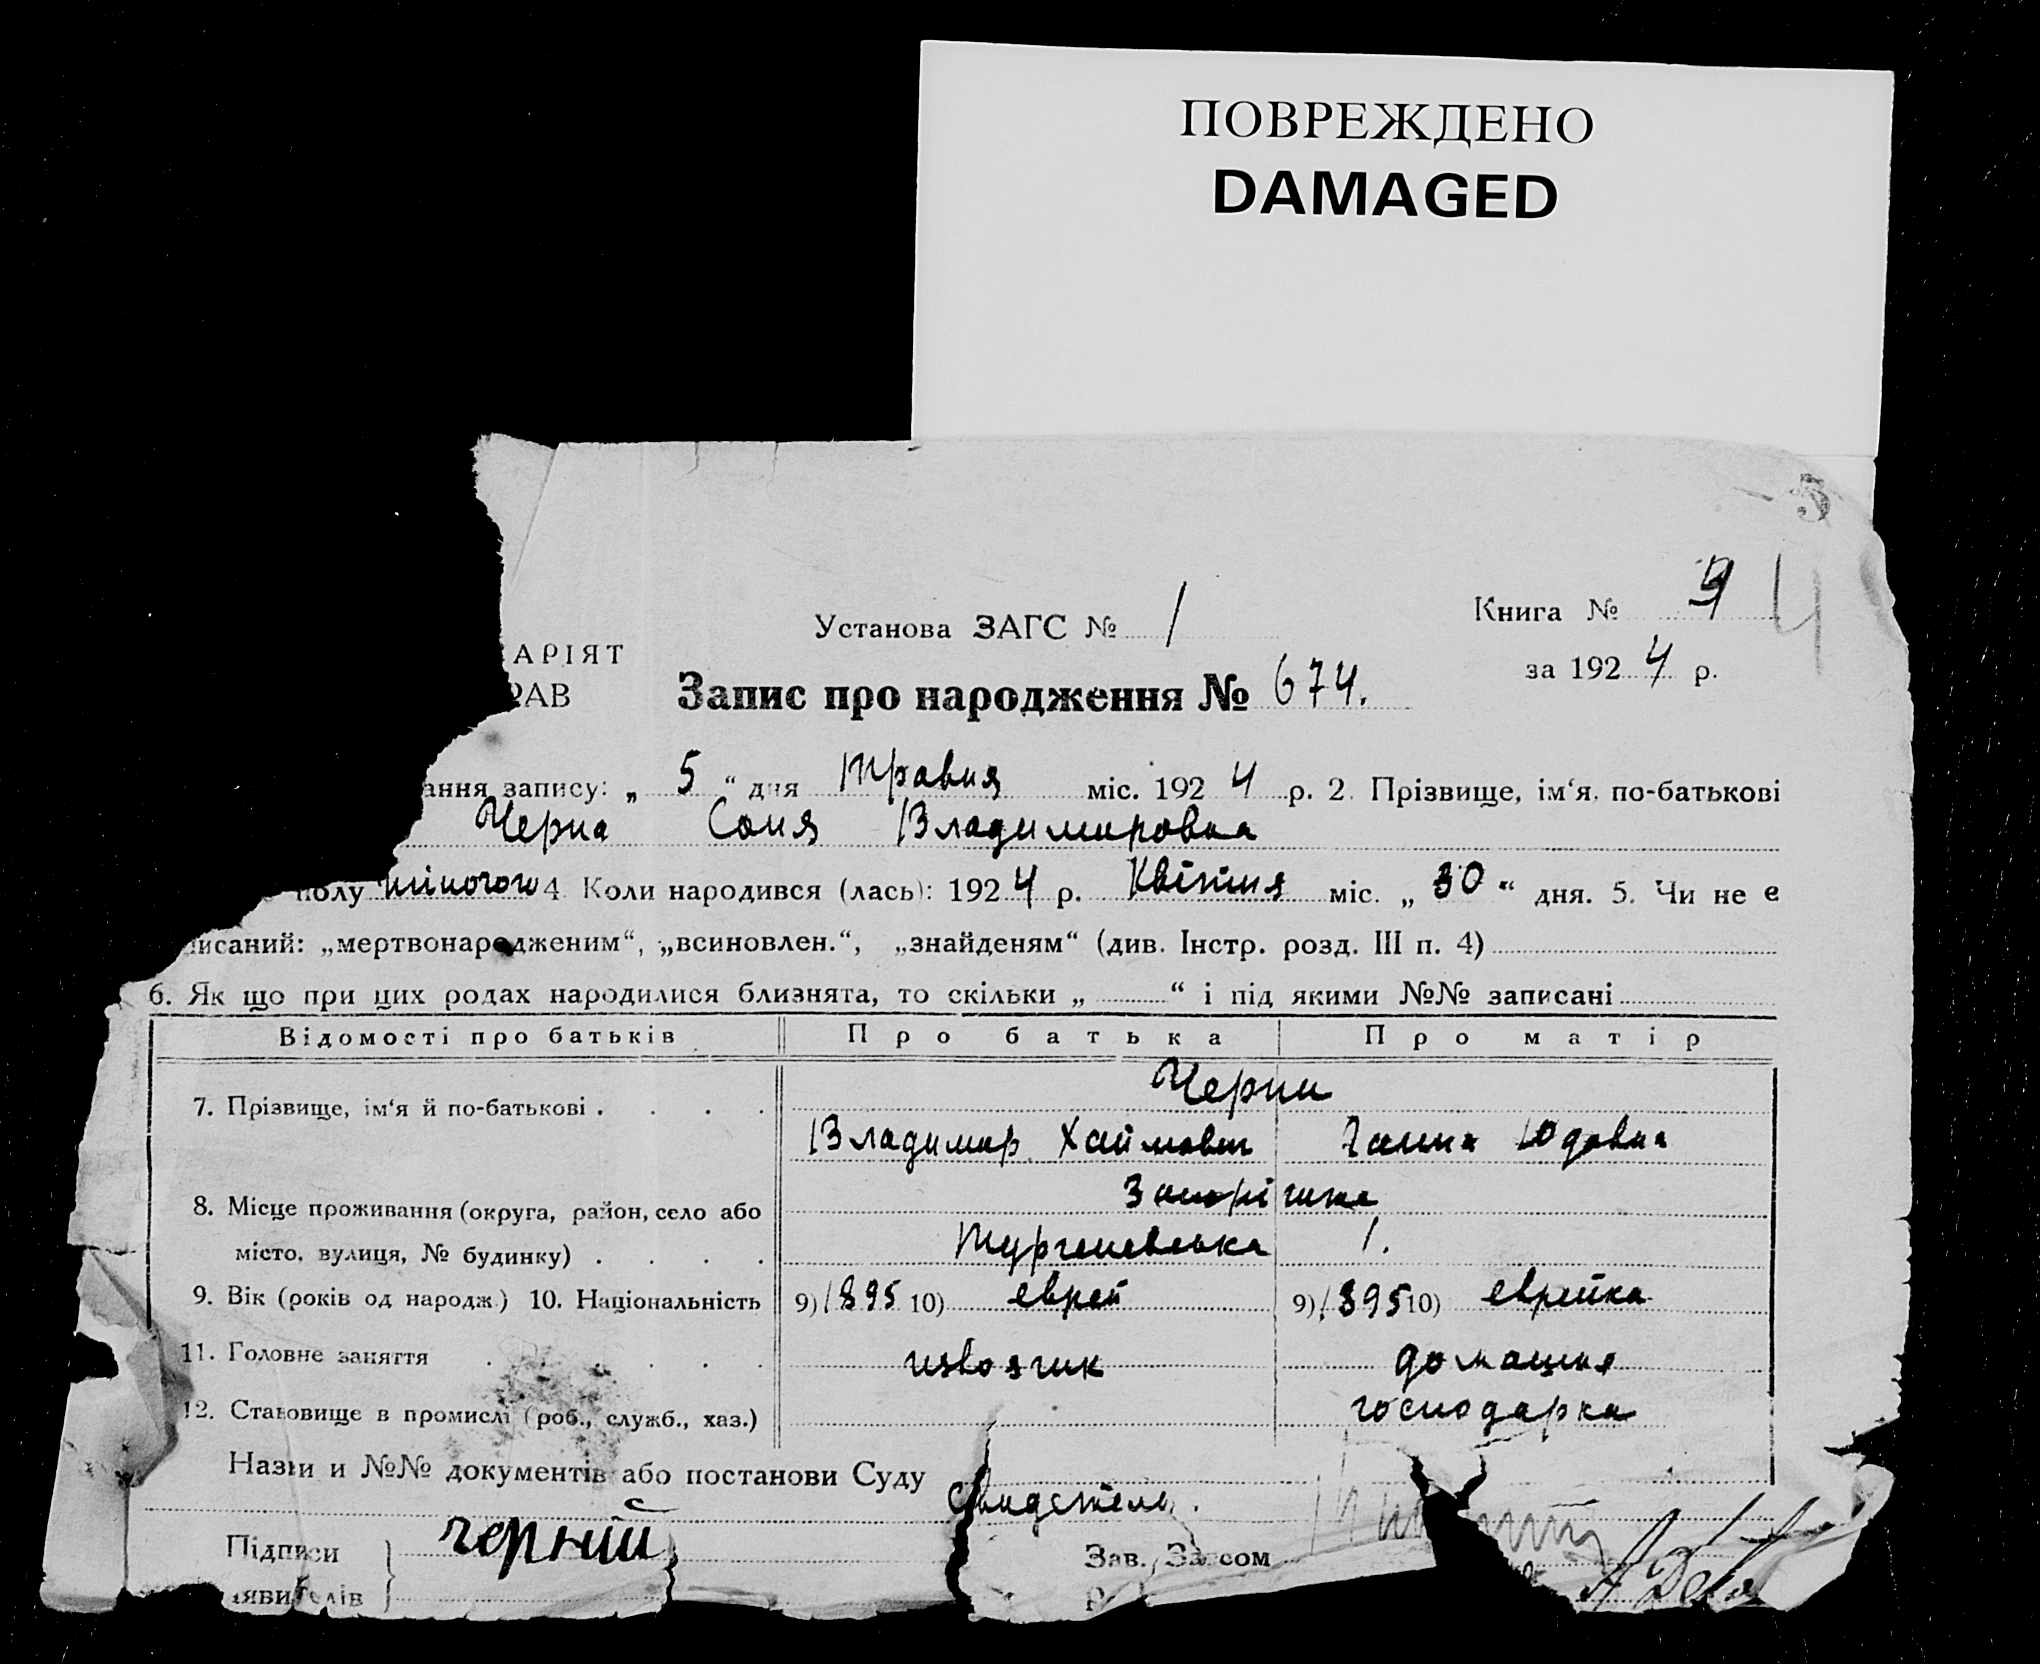 ПОВРЕЖДЕНО
DAMAGED
5
Установа ЗАГС № 1
Книга № 9 4
АРІЯТ
за 1924 р.
РАВ
Запис про народження № 674.
ання запису: „ 5 “ дня Травня міс. 1924 р. 2. Прізвище, ім‘я, по-батькові
Черна Соня Владимировна
полу жіночого 4. Коли народився (лась): 1924 р. Квітня міс. „ 30 “ дня. 5. Чи не є
писаний: „мертвонародженим“, „всиновлен.“, „знайденям“ (див. Інстр. розд. III п. 4)
6. Як що при цих родах народилися близнята, то скільки „ “ і під якими №№ записані
Відомості про батьків Про батька Про матір
Черни
7. Прізвище, ім‘я й по-батькові .
Владимир Хаймович Ганна Юдовна
Запоріжжя
8. Місце проживання (округа, район, село або
місто, вулиця, № будинку) . Тургеневська 1.
9. Вік (років од народж.) 10. Національність 9) 1895 10) еврей 9) 1895 10) еврейка
11. Головне заняття извозчик домашня
12. Становище в промислі (роб., служб., хаз.) господарка
Назви и №№ документів або постанови Суду
Свидетель.
Підписи Черний
Зав. Загсом
явителів